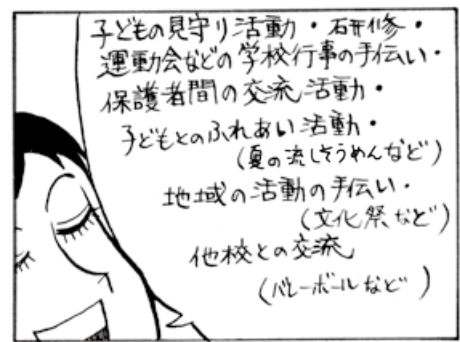 子どもの見守り活動・研修・
運動会などの学校行事の手伝い・
保護者間の交流活動・
子どもとのふれあい活動・
(夏の流しそうめんなど)
地域の活動の手伝い・
(文化祭など)
他校との交流
(バレーボールなど)